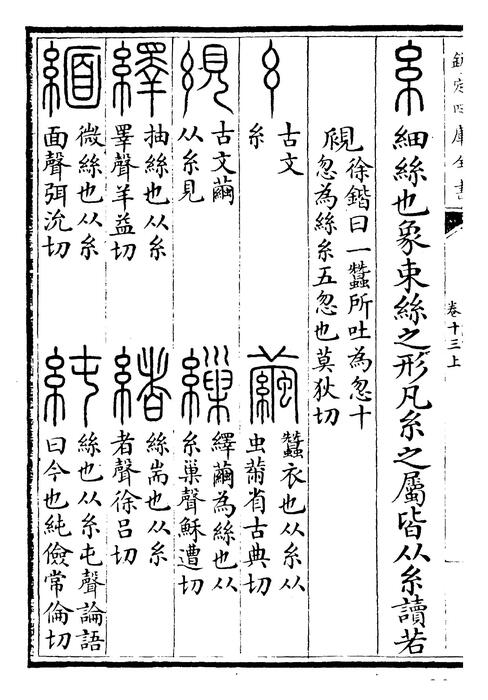 欽定四庫全書
卷十三上
糸 細絲也象束絲之形凡糸之屬皆从糸讀若
覛
徐鍇曰一蠶所吐為忽十
忽為絲糸五忽也莫狄切
𢆯
古文
糸
繭
蠶衣也从糸从
虫黹省古典切
絸
古文繭
从糸見
繅
繹繭為絲也从
糸巢聲穌遭切
繹
抽絲也从糸
睪聲羊益切
緒
絲耑也从糸
者聲徐呂切
緬
微絲也从糸
面聲弭沇切
純
絲也从糸屯聲論語
曰今也純儉常倫切